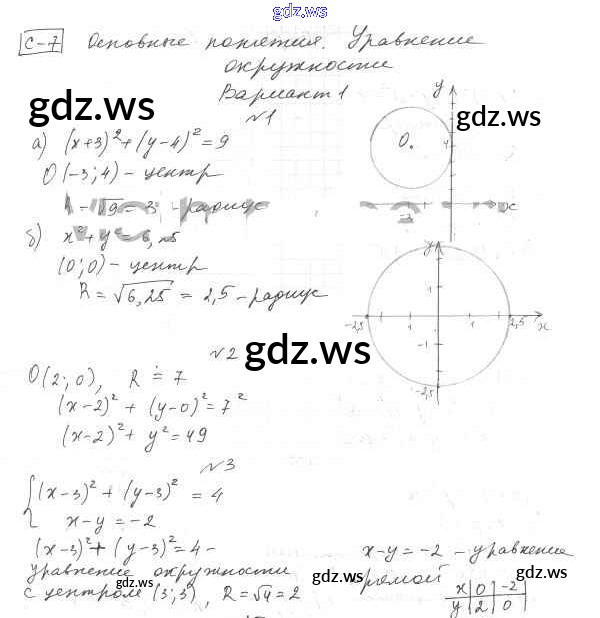 gdz.ws
С-7 Основные понятия. Уравнение
окружности
Вариант 1
gdz.ws
gdz.ws
№1
а) (x+3)² + (y-4)² = 9
O(-3; 4) - центр
R = √9 = 3 - радиус
y
O.
4
-3
x
б) x² + y² = 6,25
(0; 0) - центр
R = √6,25 = 2,5 - радиус
y
1
-2,5
1
2,5
x
-1
-2,5
№2
gdz.ws
O(2; 0), R = 7
(x-2)² + (y-0)² = 7²
(x-2)² + y² = 49
№3
{(x-3)² + (y-3)² = 4
x-y = -2
(x-3)² + (y-3)² = 4 -
уравнение окружности
с центром (3; 3), R = √4 = 2
x-y = -2 - уравнение
прямой
x 0 -2
y 2 0
gdz.ws
gdz.ws
gdz.ws